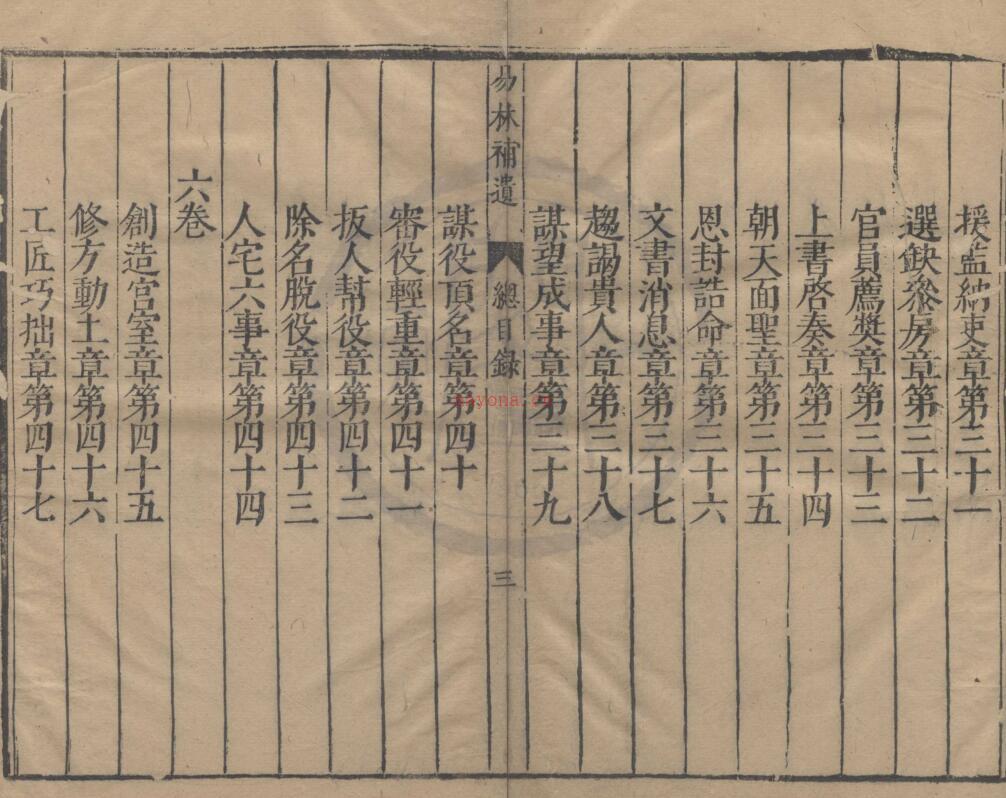 援監納吏章第三十一
選缺叅房章第三十二
官員薦奬章第三十三
上書啓奏章第三十四
朝天面聖章第三十五
恩封誥命章第三十六
文書消息章第三十七
趨謁貴人章第三十八
謀望成事章第三十九
易林補遺 總目録 三
謀役頂名章第四十
審役輕重章第四十一
扳人幇役章第四十二
除名脫役章第四十三
人宅六事章第四十四
六卷
創造宫室章第四十五
修方動土章第四十六
工匠巧拙章第四十七